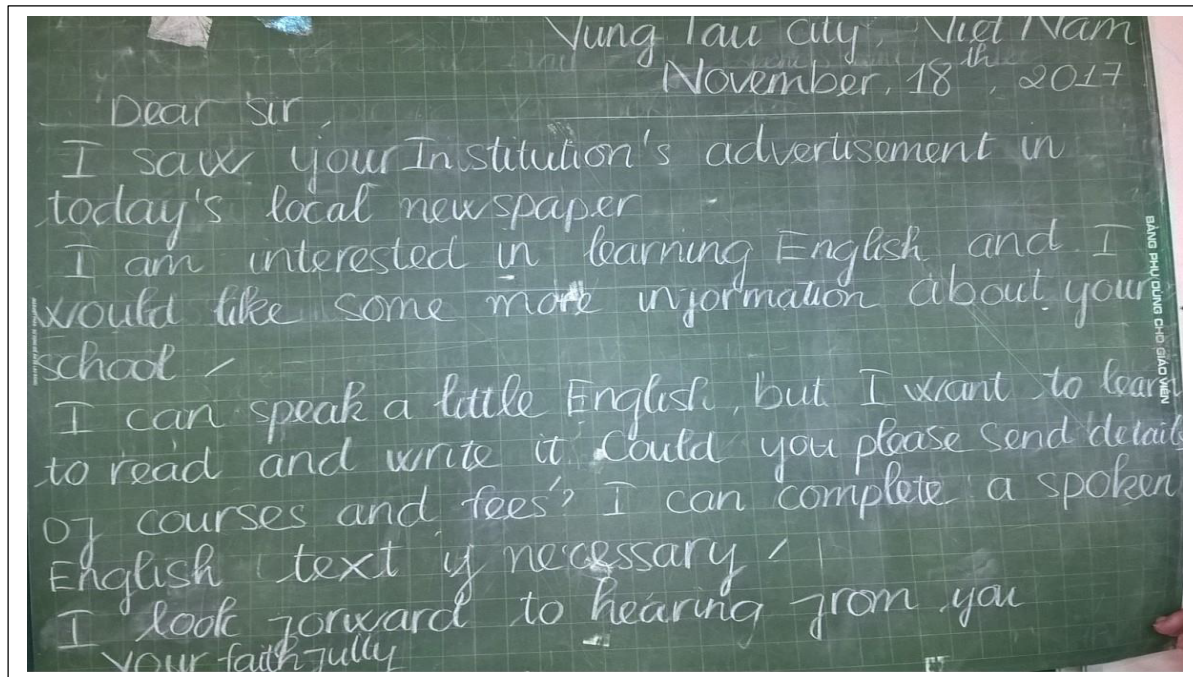 Vung Tau city, Viet Nam
November, 18th, 2017
Dear Sir,
I saw your Institution's advertisement in
today's local newspaper
I am interested in learning English and I
would like some more information about your
school
I can speak a little English, but I want to learn
to read and write it. Could you please send details
of courses and fees? I can complete a spoken
English text if necessary
I look forward to hearing from you
Your faithfully
BẢNG PHỤ DÙNG CHO GIÁO VIÊN